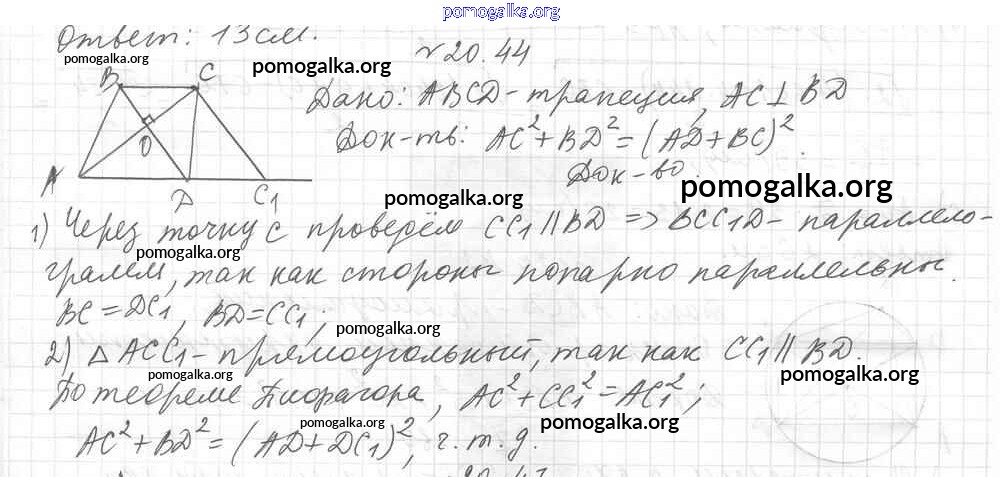 pomogalka.org
Ответ: 13 см.
pomogalka.org
№20.44
pomogalka.org
B C
O
A D C1
Дано: ABCD - трапеция, AC⊥BD
Док-ть: AC²+BD²=(AD+BC)².
Док-во
pomogalka.org
pomogalka.org
1) Через точку C проведём CC1∥BD => BCC1D - параллело-
pomogalka.org
грамм, так как стороны попарно параллельны.
BC=DC1, BD=CC1;
pomogalka.org
2) △ACC1 - прямоугольный, так как CC1∥BD.
pomogalka.org
pomogalka.org
По теореме Пифагора, AC²+CC1²=AC1²;
pomogalka.org
pomogalka.org
AC²+BD²=(AD+DC1)², ч.т.д.